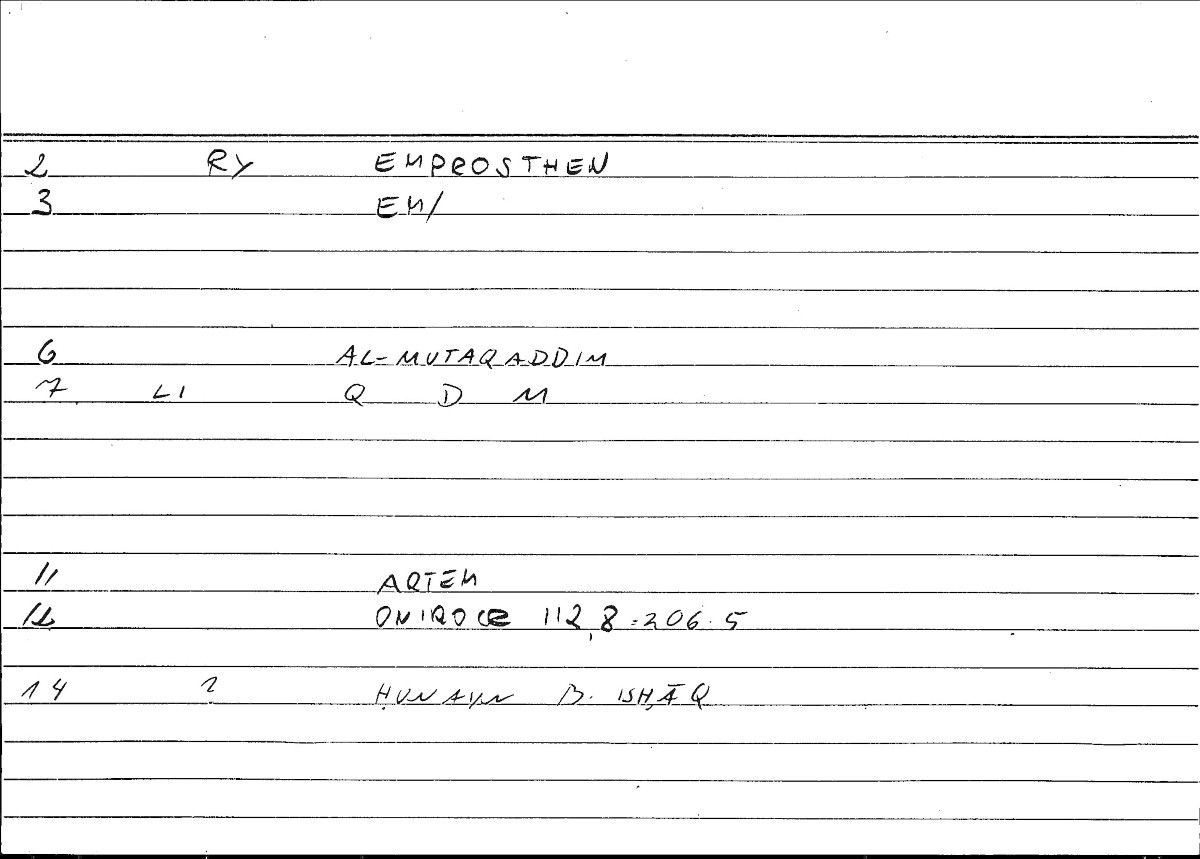 2 RY EMPROSTHEN
3 EM/
6 AL-MUTAQADDIM
7 LI Q D M
11 ARTEM
12 ONIROCR 112,8=206.5
14 2 ḤUNAYN B. ISḤĀQ